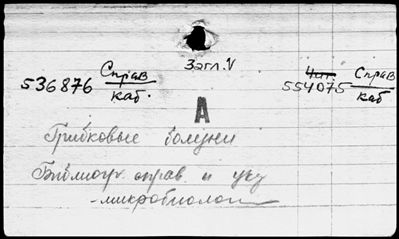 Загл. V
536876 Справ
каб.
554075 Справ
каб
А
Грибковые болезни
Библиогр. справ. и указ
-микробиологи